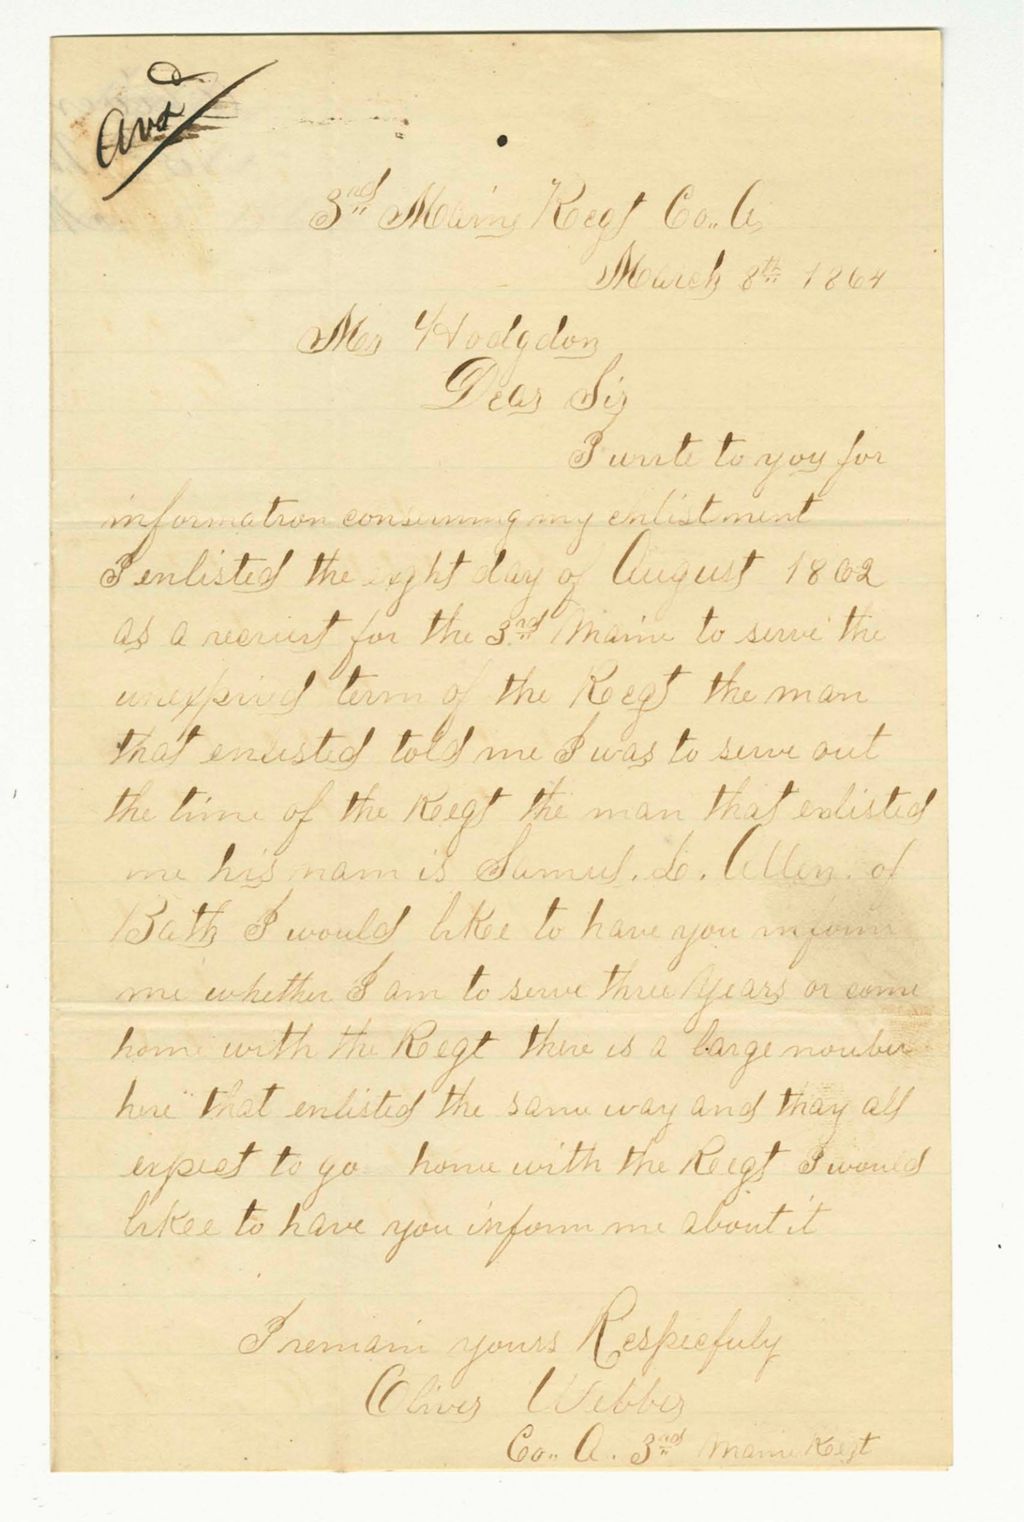 Ansd
3rd Maine Regt Co. A,
March 8th 1864
Mr Hodgdon
Dear Sir
I write to you for
information conserning my enlistment
I enlisted the eight day of August 1862
as a recruit for the 3rd Maine to serve the
unexpired term of the Regt the man
that enlisted told me I was to serve out
the time of the Regt the man that enlisted
me his nam is Samuel. L. Allen. of
Bath I would likee to have you inform
me whether I am to serve three years or come
home with the Regt there is a large nomber
here that enlisted the same way and thay all
expect to go home with the Regt I would
likee to have you inform me about it
I remain yours Respecfuly
Oliver Webber
Co. A. 3rd Maine Regt